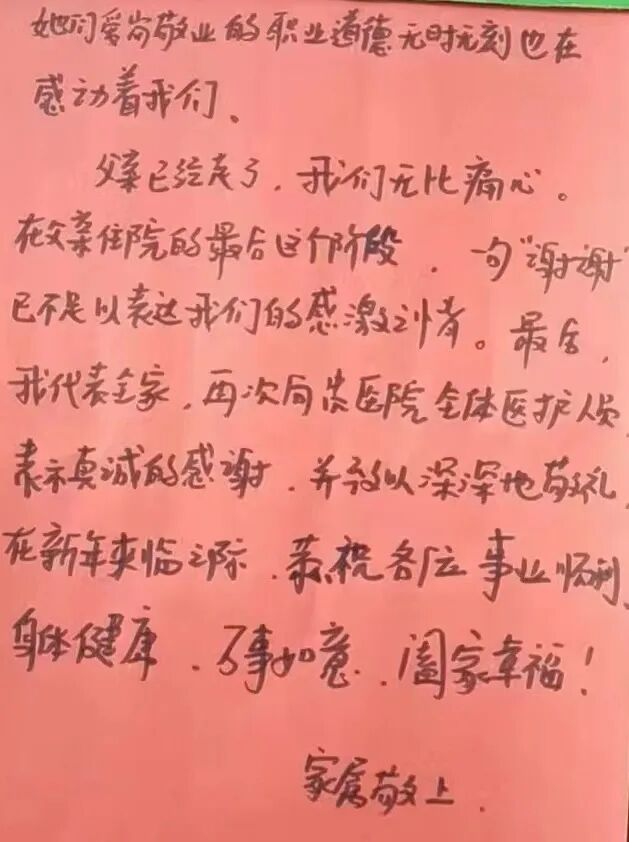 她们爱岗敬业的职业道德无时无刻也在
感动着我们、
父亲已经走了，我们无比痛心。
在父亲住院的最后这个阶段，一句“谢谢”
已不足以表达我们的感激之情。最后，
我代表全家，再次向贵医院全体医护人员
表示真诚的感谢，并致以深深地敬礼，
在新年来临之际，恭祝各位事业顺利、
身体健康，万事如意，阖家幸福！
家属敬上．